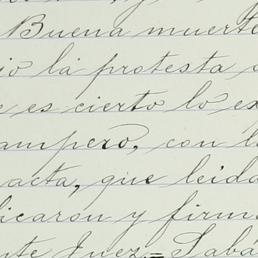 Buena muerte
io la protesta
es cierto lo ex
ampero, con l
acta, que leida
icaron y firm
nte Juez.=Sabá